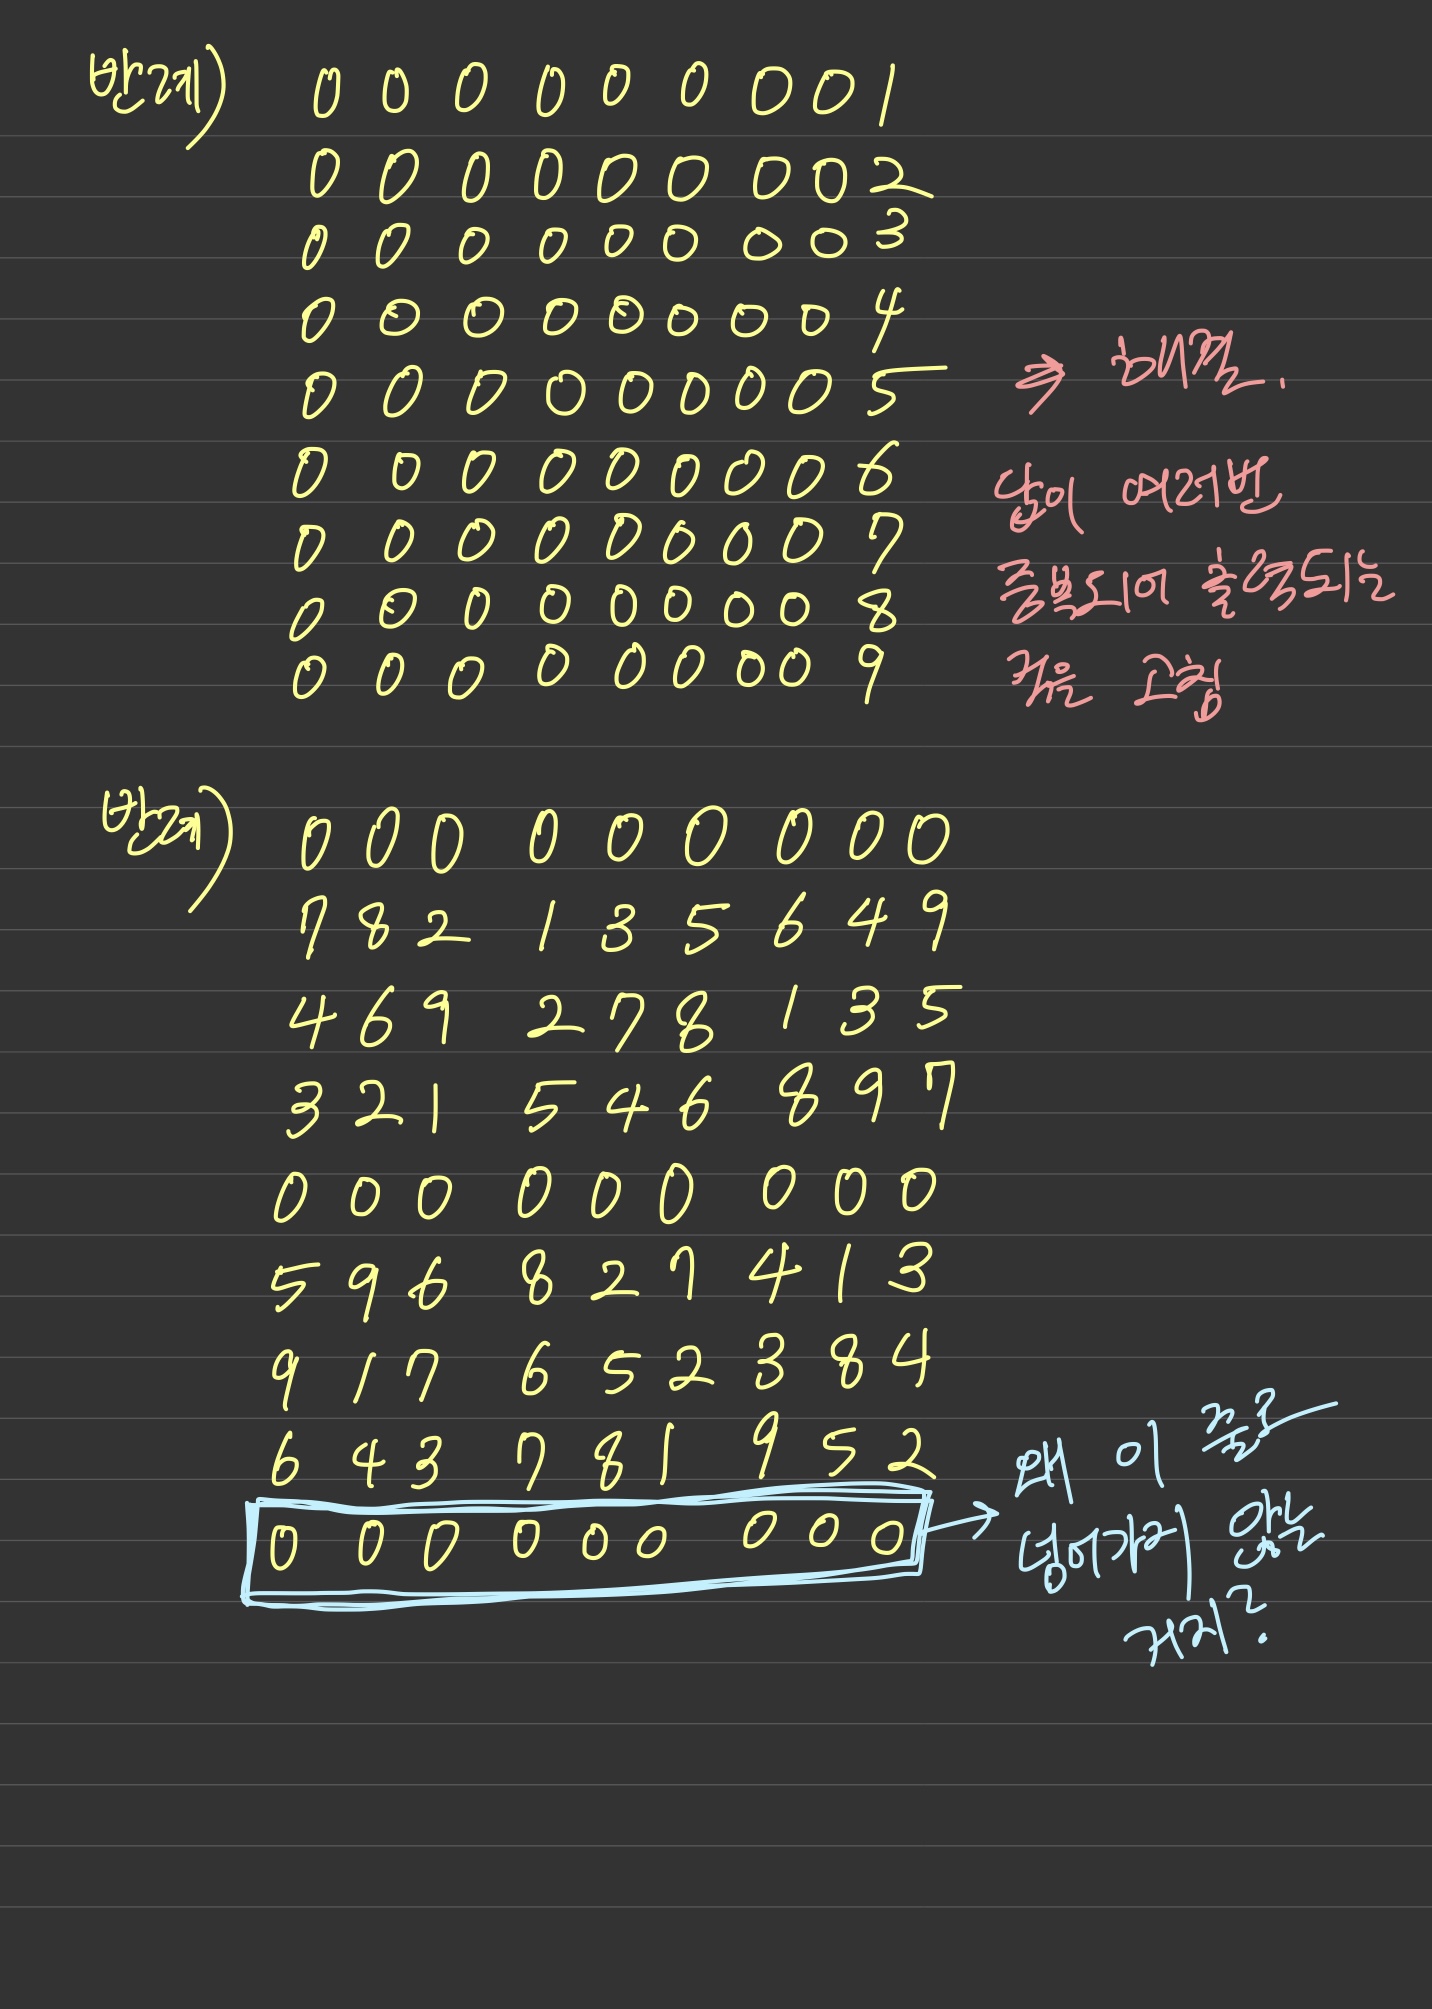 반례) 0 0 0 0 0 0 0 0 1
0 0 0 0 0 0 0 0 2
0 0 0 0 0 0 0 0 3
0 0 0 0 0 0 0 0 4
0 0 0 0 0 0 0 0 5
0 0 0 0 0 0 0 0 6
0 0 0 0 0 0 0 0 7
0 0 0 0 0 0 0 0 8
0 0 0 0 0 0 0 0 9
→ 해결.
답이 여러번
중복되어 출력되는
거은 고침
반례) 0 0 0 0 0 0 0 0 0
7 8 2 1 3 5 6 4 9
4 6 9 2 7 8 1 3 5
3 2 1 5 4 6 8 9 7
0 0 0 0 0 0 0 0 0
5 9 6 8 2 7 4 1 3
9 1 7 6 5 2 3 8 4
6 4 3 7 8 1 9 5 2
0 0 0 0 0 0 0 0 0
→ 왜 이 줄로
넘어가지 않는
거지?